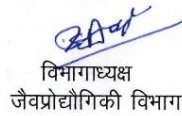 विभागाध्यक्ष
जैवप्रोद्यौगिकी विभाग